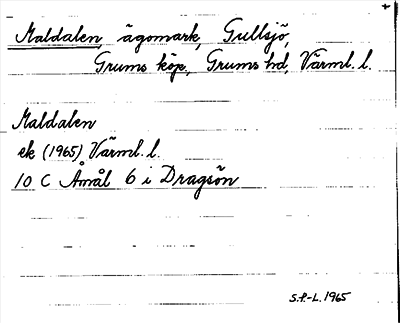 Maldalen, ägomark, Gullsjö,
Grums köp., Grums hd, Värml. l.
Maldalen
ek (1965) Värml. l.
10 C Åmål 6 i Dragsön
S.P.-L. 1965